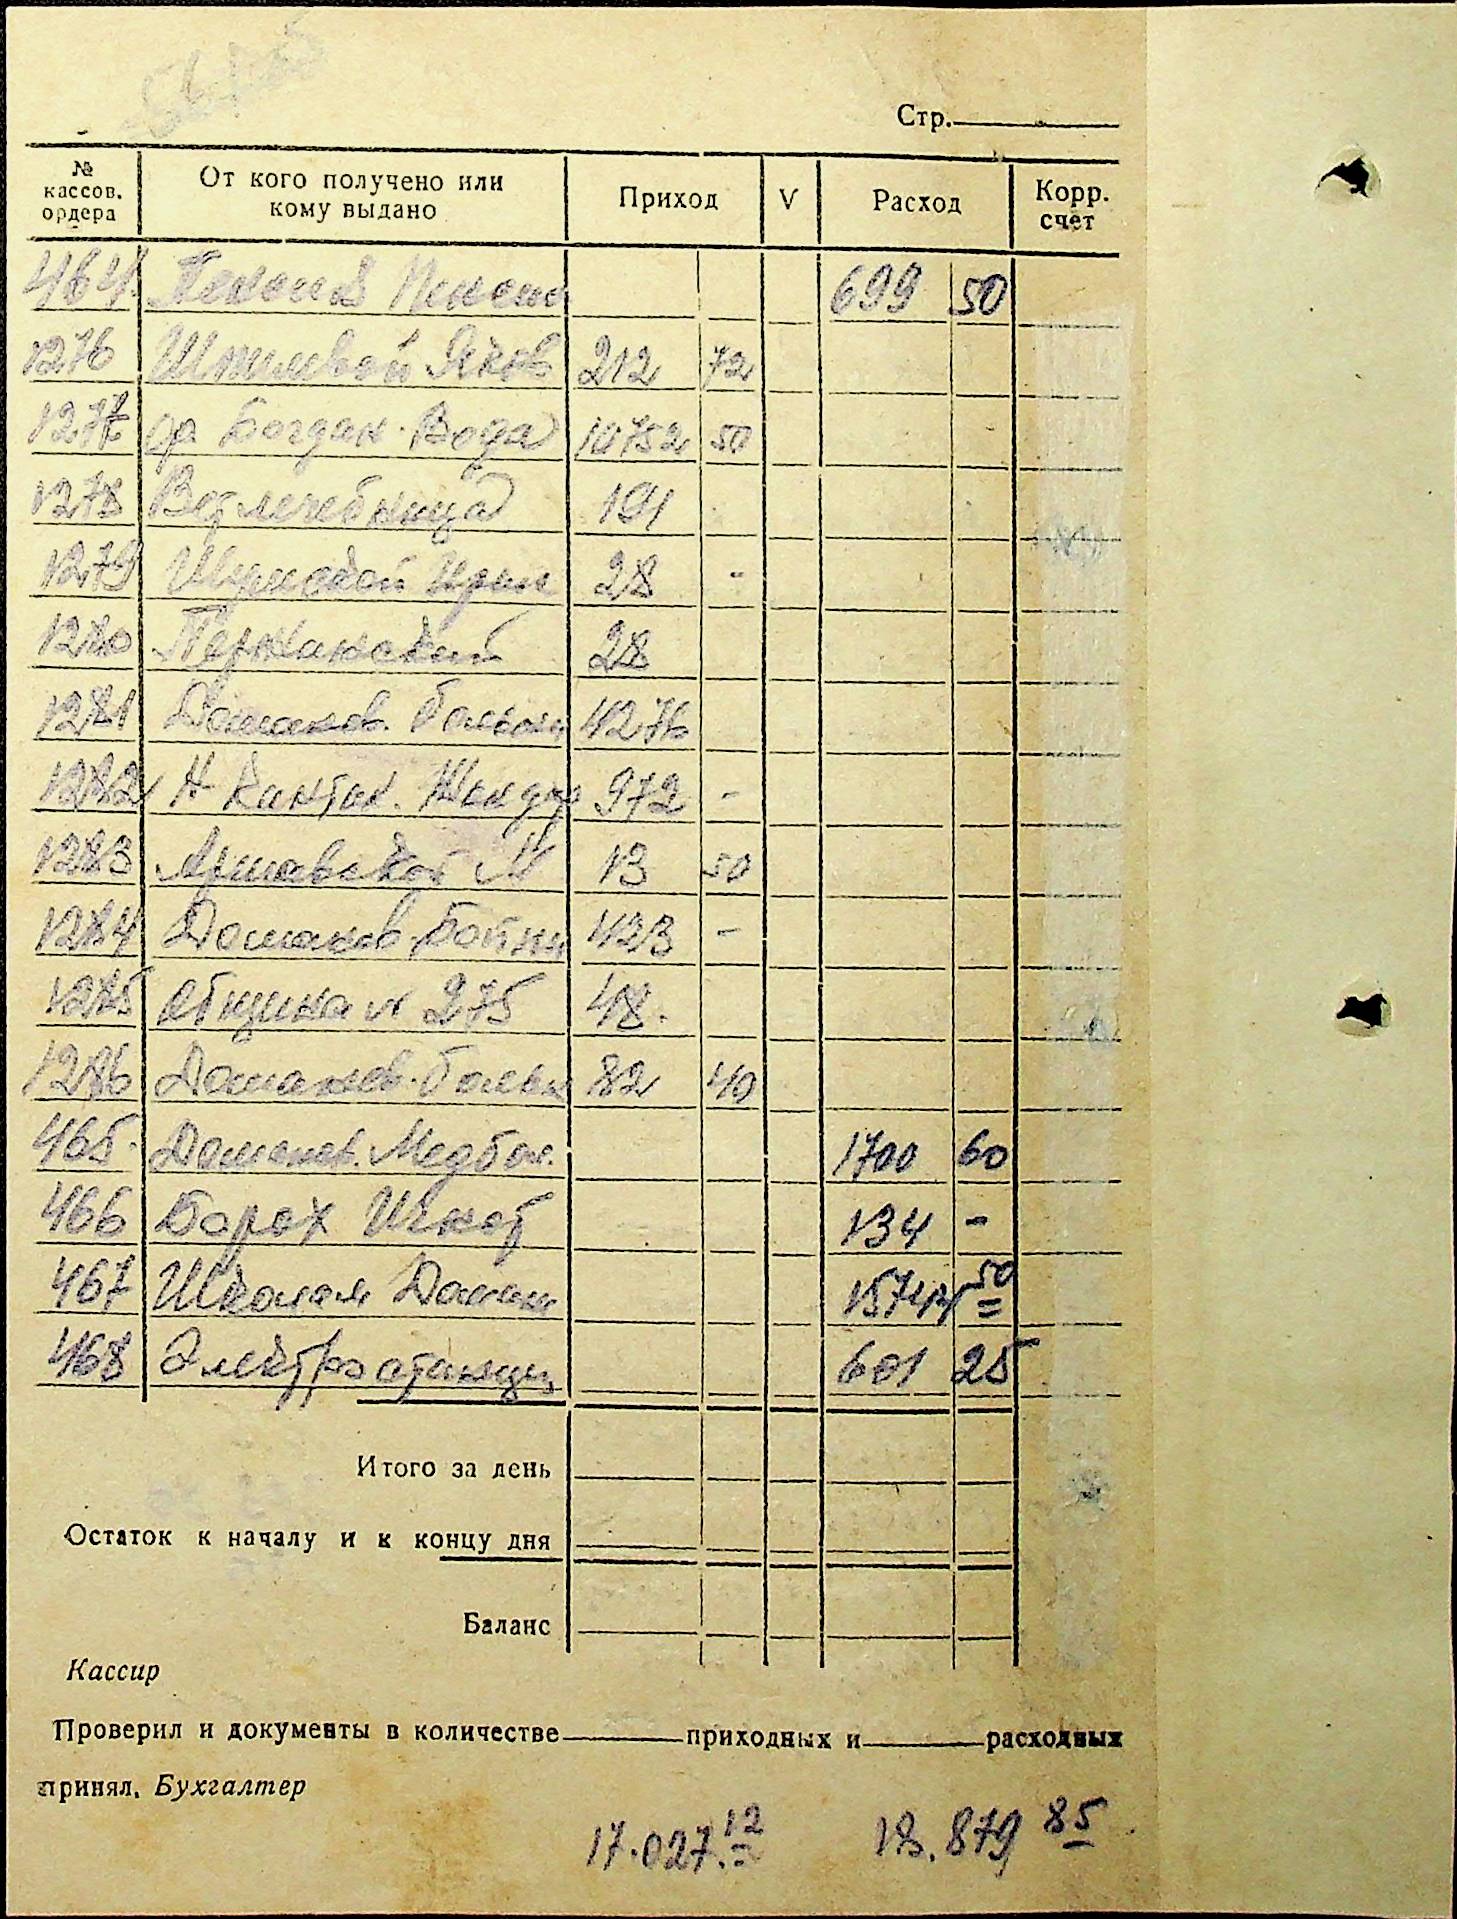 Стр.
№ кассов. ордера От кого получено или кому выдано Приход V Расход Корр. счет
464 699 50
1276 Яков 212 72
1277 ор Богдан. Вода 10752 50
1278 Ветлечебница 191
1279 28 -
1280 28
1281 Доманов. больни 4276
1282 972 -
1283 13 50
1284 Доманов. Бойни 423 -
1285 Община № 275 48.
1286 Доманов. больн 82 40
465. Доманов. 1700 60
466 Борох 134 -
467 15744 50
468 Электростанци 601 25
Итого за день
Остаток к началу и к концу дня
Баланс
Кассир
Проверил и документы в количестве приходных и расходных
принял. Бухгалтер
17.027.12 18.879 85